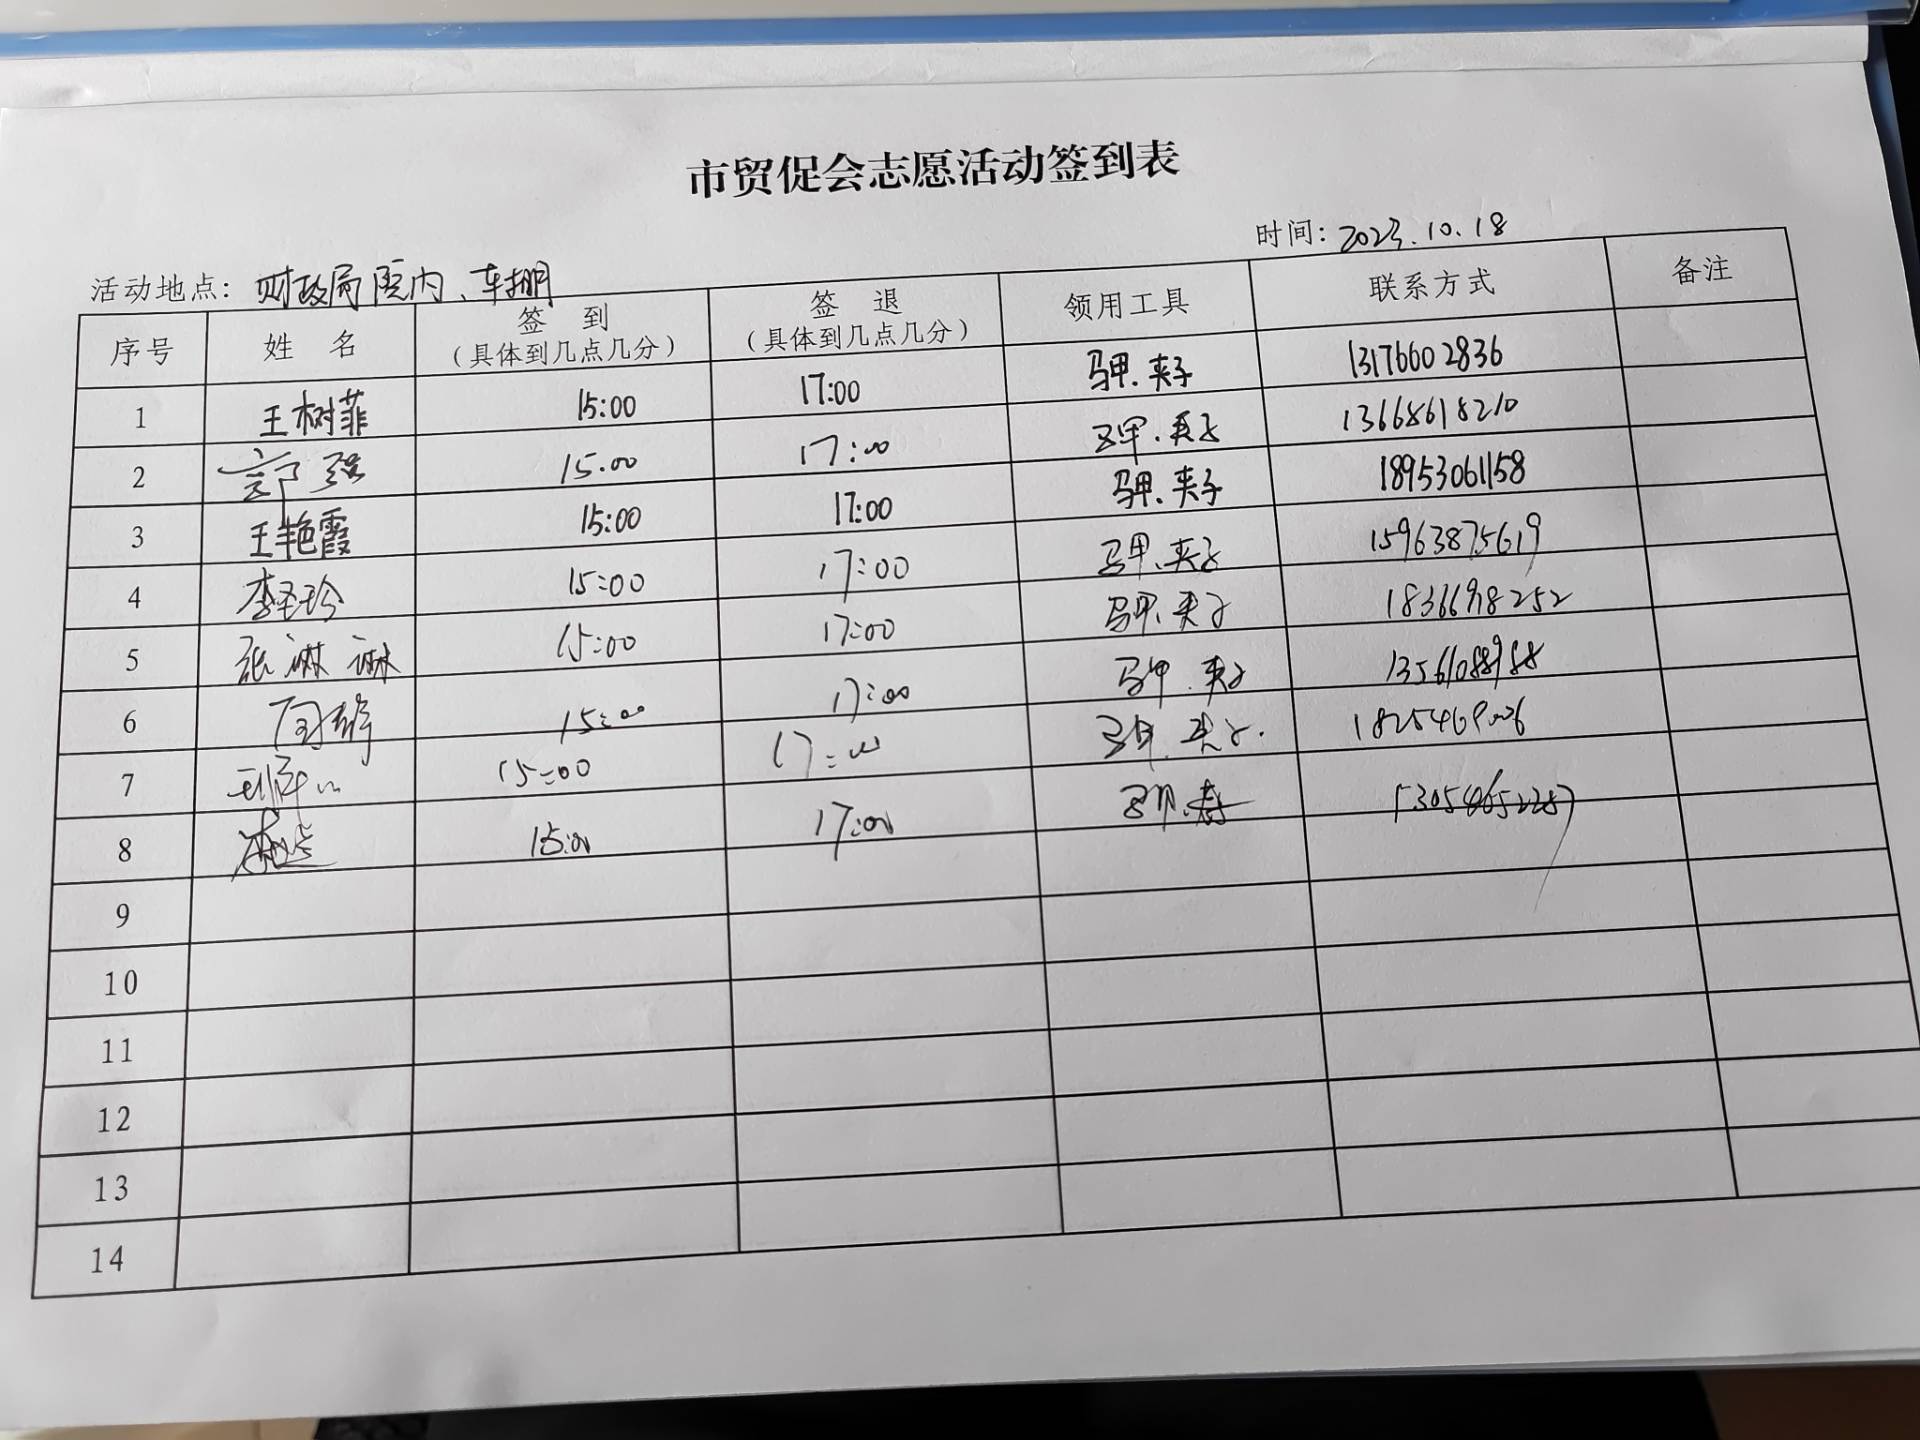 市贸促会志愿活动签到表
时间：2023.10.18
活动地点：财政局院内、车棚
序号 姓 名 签 到 （具体到几点几分） 签 退 （具体到几点几分） 领用工具 联系方式 备注
1 王树菲 15:00 17:00 马甲、夹子 13176602836
2 郭强 15.00 17:00 马甲、夹子 13668618210
3 王艳霞 15:00 17:00 马甲、夹子 18953061158
4 李圣珍 15:00 17:00 马甲、夹子 15963875619
5 张淋淋 15:00 17:00 马甲、夹子
6 15:00 17:00 马甲、夹子
7 15:00 17:00 马甲、夹子
8 15:00 17:00 马甲
9
10
11
12
13
14